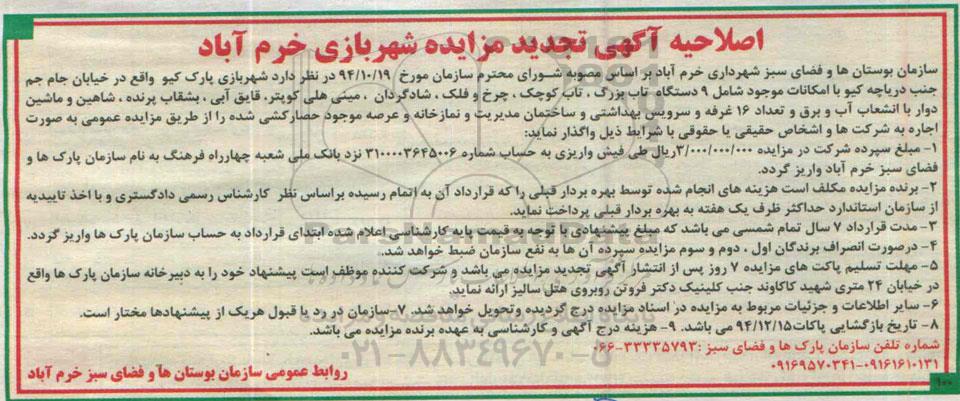 اصلاحیه آگهی تجدید مزایده شهربازی خرم آباد
سازمان بوستان ها و فضای سبز شهرداری خرم آباد بر اساس مصوبه شورای محترم سازمان مورخ ۹۴/۱۰/۱۹ در نظر دارد شهربازی پارک کیو واقع در خیابان جام جم
جنب دریاچه کیو با امکانات موجود شامل ۹ دستگاه تاب بزرگ ، تاب کوچک ، چرخ و فلک ، شادگردان ، مینی هلی کوپتر، قایق آبی ، بشقاب پرنده ، شاهین و ماشین
دوار با انشعاب آب و برق و تعداد ۱۶ غرفه و سرویس بهداشتی و ساختمان مدیریت و نمازخانه و عرصه موجود حصارکشی شده را از طریق مزایده عمومی به صورت
اجاره به شرکت ها و اشخاص حقیقی یا حقوقی با شرایط ذیل واگذار نماید:
۱- مبلغ سپرده شرکت در مزایده ۳/۰۰۰/۰۰۰/۰۰۰ریال طی فیش واریزی به حساب شماره ۳۱۰۰۰۰۳۶۴۵۰۰۶ نزد بانک ملی شعبه چهارراه فرهنگ به نام سازمان پارک ها و
فضای سبز خرم آباد واریز گردد.
۲- برنده مزایده مکلف است هزینه های انجام شده توسط بهره بردار قبلی را که قرارداد آن به اتمام رسیده براساس نظر کارشناس رسمی دادگستری و با اخذ تاییدیه
از سازمان استاندارد حداکثر ظرف یک هفته به بهره بردار قبلی پرداخت نماید.
۳- مدت قرارداد ۷ سال تمام شمسی می باشد که مبلغ پیشنهادی با توجه به قیمت پایه کارشناسی اعلام شده ابتدای قرارداد به حساب سازمان پارک ها واریز گردد.
۴- درصورت انصراف برندگان اول ، دوم و سوم مزایده سپرده آن ها به نفع سازمان ضبط خواهد شد.
۵- مهلت تسلیم پاکت های مزایده ۷ روز پس از انتشار آگهی تجدید مزایده می باشد و شرکت کننده موظف است پیشنهاد خود را به دبیرخانه سازمان پارک ها واقع
در خیابان ۲۴ متری شهید کاکاوند جنب کلینیک دکتر فروتن روبروی هتل سالیز ارائه نماید.
۶- سایر اطلاعات و جزئیات مربوط به مزایده در اسناد مزایده درج گردیده وتحویل خواهد شد. ۷-سازمان در رد یا قبول هریک از پیشنهادها مختار است.
۸- تاریخ بازگشایی پاکات۹۴/۱۲/۱۵ می باشد. ۹- هزینه درج آگهی و کارشناسی به عهده برنده مزایده می باشد.
شماره تلفن سازمان پارک ها و فضای سبز :۳۳۳۳۵۷۹۳-۰۶۶
۰۹۱۶۹۵۷۰۳۴۱-۰۹۱۶۱۶۱۰۱۳۱
روابط عمومی سازمان بوستان ها و فضای سبز خرم آباد
۰۲۱-۸۸۳۴۹۶۷۰-۵